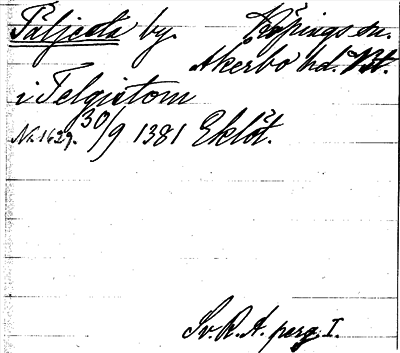 Täljesta by. Köpings sn.
Åkerbo hd. Vstm.
i Telgistom
Nr. 1629. 30/9 1381 Eklöt.
Sv. R. A. perg I.